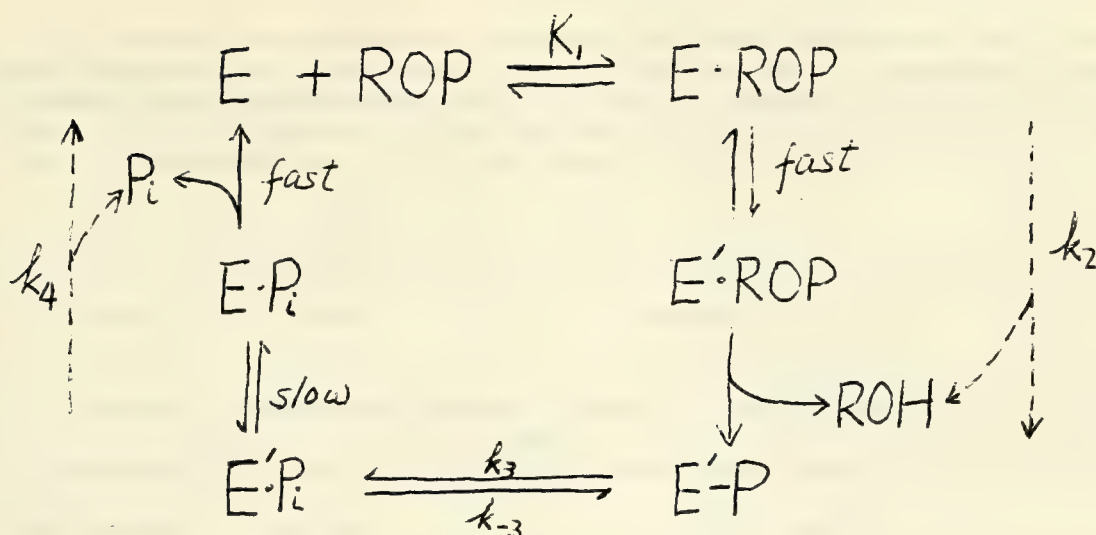 E + ROP K₁ E·ROP
Pᵢ fast fast
k₄ E·Pᵢ E′·ROP k₂
slow ROH
E′·Pᵢ k₃ E′-P
k₋₃